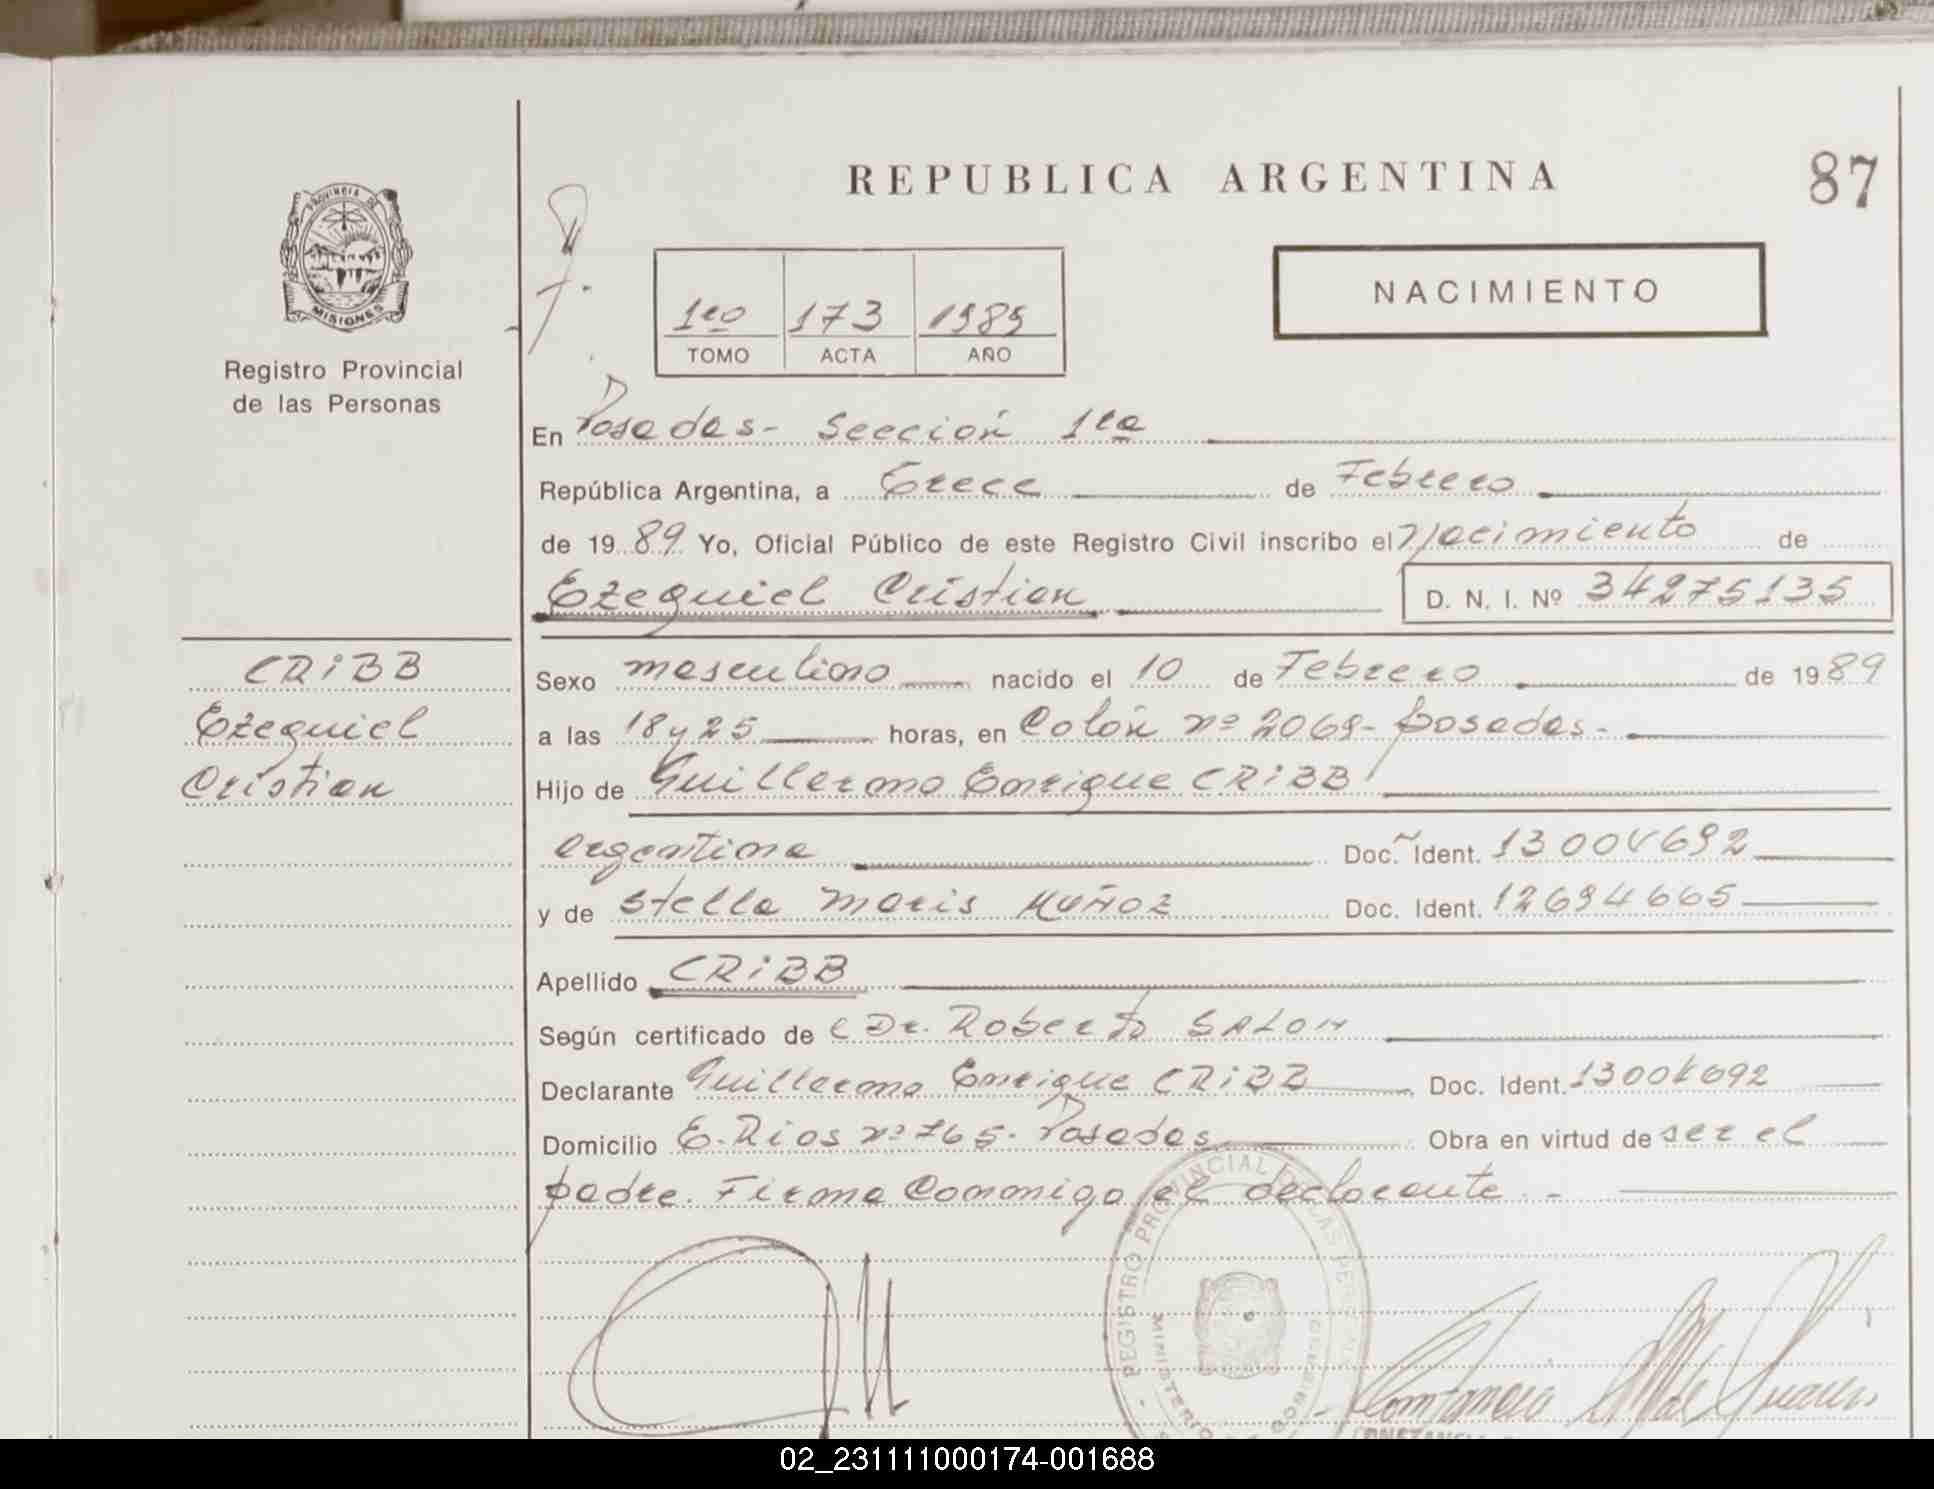 REPUBLICA ARGENTINA
87
PROVINCIA DE
MISIONES
Registro Provincial
de las Personas
1ro 173 1989
TOMO ACTA AÑO
NACIMIENTO
En Posadas- Sección 1ra
República Argentina, a trece de Febrero
de 1989 Yo, Oficial Público de este Registro Civil inscribo el Nacimiento de
Ezequiel Cristian D. N. I. Nº 34275135
CRiBB
Ezequiel
Cristian
Sexo masculino nacido el 10 de Febrero de 1989
a las 18 y 25 horas, en Colón nº 2069- posadas-
Hijo de Guillermo Enrique CRiBB
argentina Doc. Ident.
y de Stella Maris MUÑOZ Doc. Ident. 12694665
Apellido CRiBB
Según certificado de Dr. Roberto SALOM
Declarante Guillermo Enrique CRiBB Doc. Ident.
Domicilio E. Rios nº 765- Posadas Obra en virtud de ser el
padre. Firma Conmigo el declarante.-
REGISTRO PROVINCIAL DE LAS PERSONAS
MINISTERIO GOBIERNO
02_231111000174-001688